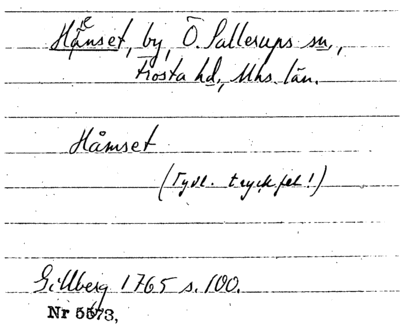 Hänset, by, Ö. Sallerups sn.,
Frosta hd, Mhs. län.
Håmset
(Tydl. tryckfel!)
Gillberg 1765 s. 100.
Nr 5573,